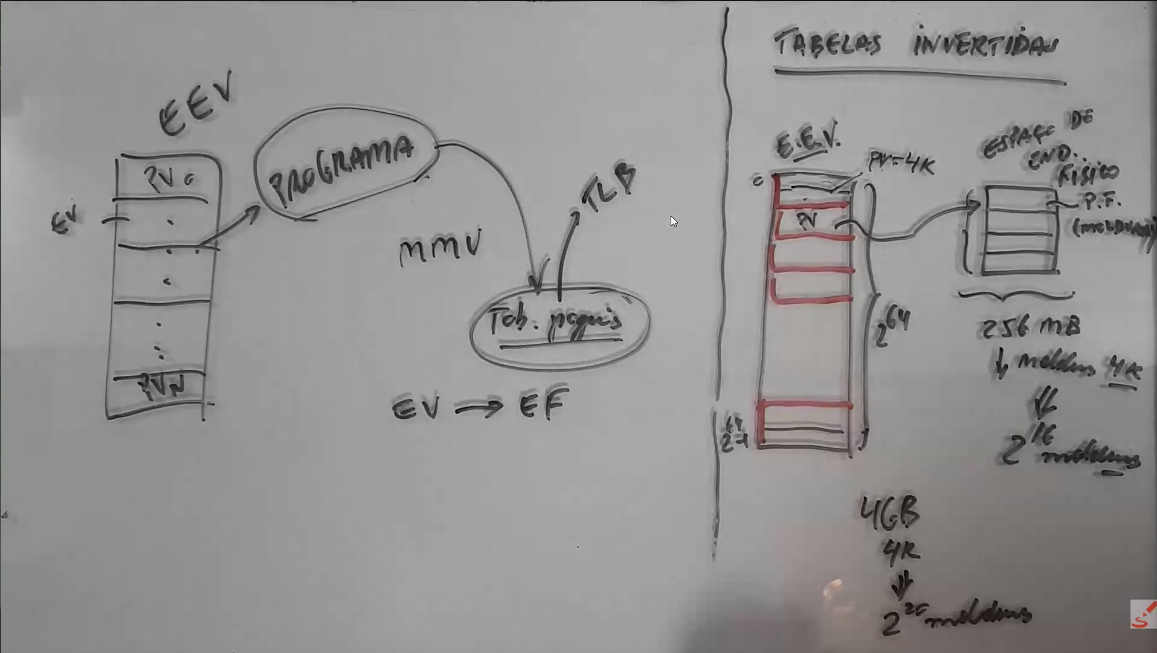 EEV
PV0
EV
PVN
PROGRAMA
TLB
MMV
Tab. págs
EV → EF
TABELAS INVERTIDAS
E.E.V.
PV=4K
0
PV
2^64
2^64-1
ESPAÇO DE
END.
FÍSICO
P.F.
(moldura)
256 MB
↓ moldes 4K
⇓
2^16 moldes
4GB
4K
⇓
2^20 moldes